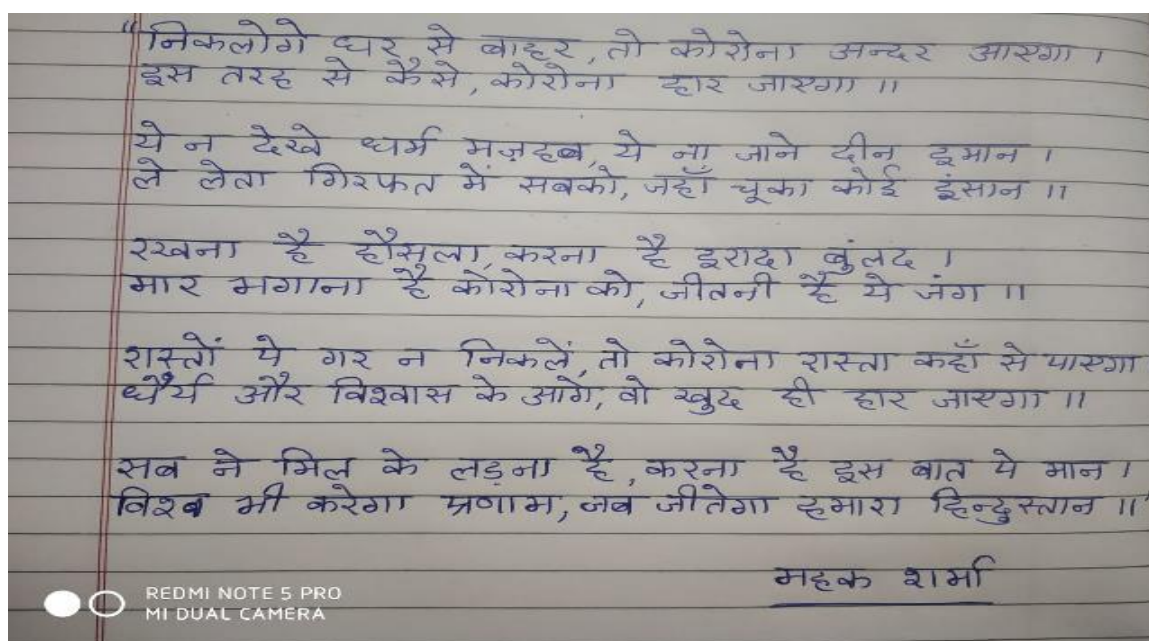 "निकलोगे घर से बाहर, तो कोरोना अन्दर आएगा ।
इस तरह से कैसे, कोरोना हार जाएगा ॥
ये न देखे धर्म मज़हब, ये ना जाने दीन इमान ।
ले लेता गिरफत में सबको, जहाँ चूका कोई इंसान ॥
रखना है हौसला, करना है इरादा बुंलद ।
मार भगाना है कोरोना को, जीतनी है ये जंग ॥
रास्तों पे गर न निकलें, तो कोरोना रास्ता कहाँ से पाएगा
धैर्य और विश्वास के आगे, वो खुद ही हार जाएगा ॥
सब ने मिल के लड़ना है, करना है इस बात पे मान ।
विश्व भी करेगा प्रणाम, जब जीतेगा हमारा हिन्दुस्तान ॥"
महक शर्मा
REDMI NOTE 5 PRO
MI DUAL CAMERA